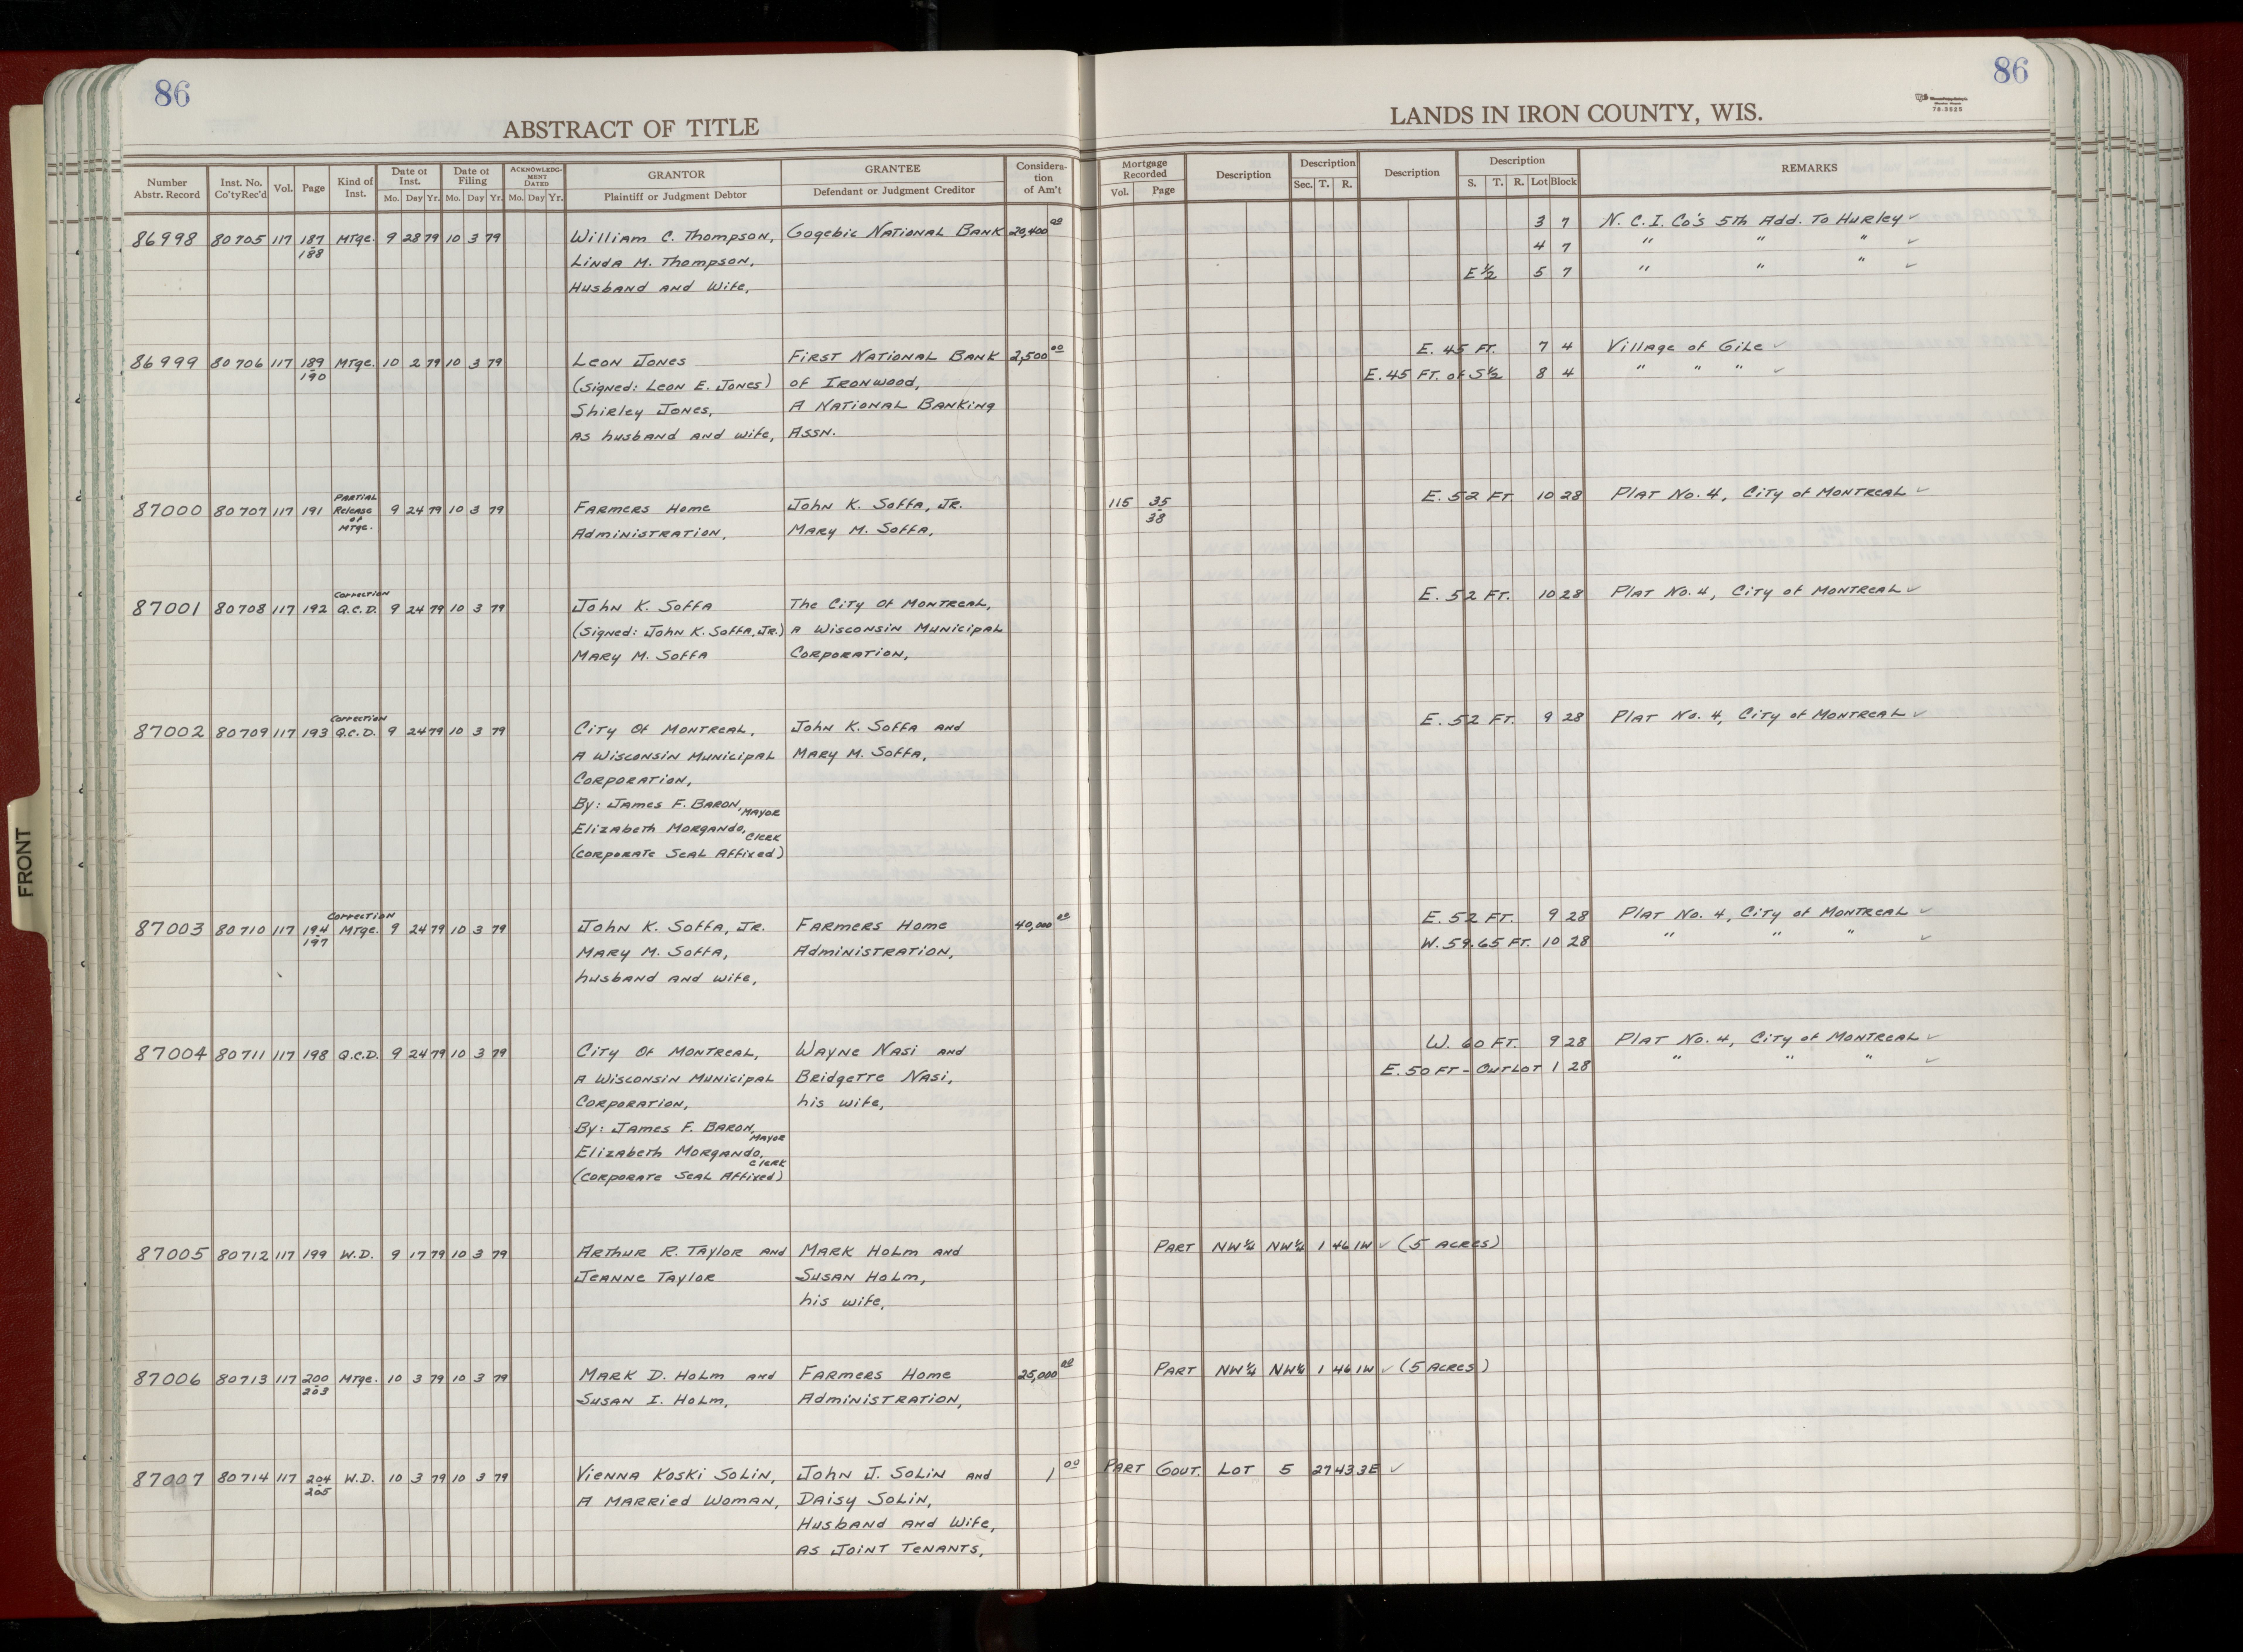 86
86
ABSTRACT OF TITLE
LANDS IN IRON COUNTY, WIS.
78-3525
FRONT
Number Abstr. Record | Inst. No. Co'ty Rec'd | Vol. | Page | Kind of Inst. | Date of Inst. Mo. Day Yr. | Date of Filing Mo. Day Yr. | ACKNOWLEDGMENT DATED Mo. Day Yr. | GRANTOR Plaintiff or Judgment Debtor | GRANTEE Defendant or Judgment Creditor | Consideration of Am't | Mortgage Recorded Vol. Page | Description | Description Sec. T. R. | Description | Description S. T. R. Lot Block | REMARKS
86998 80705 117 187-188 Mtge. 9 28 79 10 3 79 William C. Thompson, Gogebic National Bank 20,400 00 3 7 N. C. I. Co's 5th Add. To Hurley ✓
Linda M. Thompson, 4 7 " " " ✓
Husband and Wife, E ½ 5 7 " " " ✓
86999 80706 117 189-190 Mtge. 10 2 79 10 3 79 Leon Jones First National Bank 2,500 00 E. 45 Ft. 7 4 Village of Gile ✓
(Signed: Leon E. Jones) of Ironwood, E. 45 Ft. of S½ 8 4 " " " ✓
Shirley Jones, A National Banking
As husband and wife, Assn.
87000 80707 117 191 Partial Release of Mtge. 9 24 79 10 3 79 Farmers Home John K. Soffa, Jr. 115 35-38 E. 52 Ft. 10 28 Plat No. 4, City of Montreal ✓
Administration, Mary M. Soffa,
87001 80708 117 192 Correction Q.C.D. 9 24 79 10 3 79 John K. Soffa The City Of Montreal, E. 52 Ft. 10 28 Plat No. 4, City of Montreal ✓
(Signed: John K. Soffa, Jr.) A Wisconsin Municipal
Mary M. Soffa Corporation,
87002 80709 117 193 Correction Q.C.D. 9 24 79 10 3 79 City Of Montreal, John K. Soffa and E. 52 Ft. 9 28 Plat No. 4, City of Montreal ✓
A Wisconsin Municipal Mary M. Soffa,
Corporation,
By: James F. Baron, Mayor
Elizabeth Morgando, Clerk
(Corporate Seal Affixed)
87003 80710 117 194-197 Correction Mtge. 9 24 79 10 3 79 John K. Soffa, Jr. Farmers Home 40,000 00 E. 52 Ft. 9 28 Plat No. 4, City of Montreal ✓
Mary M. Soffa, Administration, W. 59.65 Ft. 10 28 " " " ✓
husband and wife,
87004 80711 117 198 Q.C.D. 9 24 79 10 3 79 City Of Montreal, Wayne Nasi and W. 60 Ft. 9 28 Plat No. 4, City of Montreal ✓
A Wisconsin Municipal Bridgette Nasi, E. 50 Ft - Outlot 1 28 " " " ✓
Corporation, his wife,
By: James F. Baron, Mayor
Elizabeth Morgando, Clerk
(Corporate Seal Affixed)
87005 80712 117 199 W.D. 9 17 79 10 3 79 Arthur R. Taylor and Mark Holm and Part NW¼ NW¼ 1 46 1W ✓ (5 Acres)
Jeanne Taylor Susan Holm,
his wife,
87006 80713 117 200-203 Mtge. 10 3 79 10 3 79 Mark D. Holm and Farmers Home 25,000 00 Part NW¼ NW¼ 1 46 1W ✓ (5 Acres)
Susan I. Holm, Administration,
87007 80714 117 204-205 W.D. 10 3 79 10 3 79 Vienna Koski Solin, John J. Solin and 1 00 Part Gout. Lot 5 27 43 3E ✓
A Married Woman, Daisy Solin,
Husband and Wife,
As Joint Tenants,